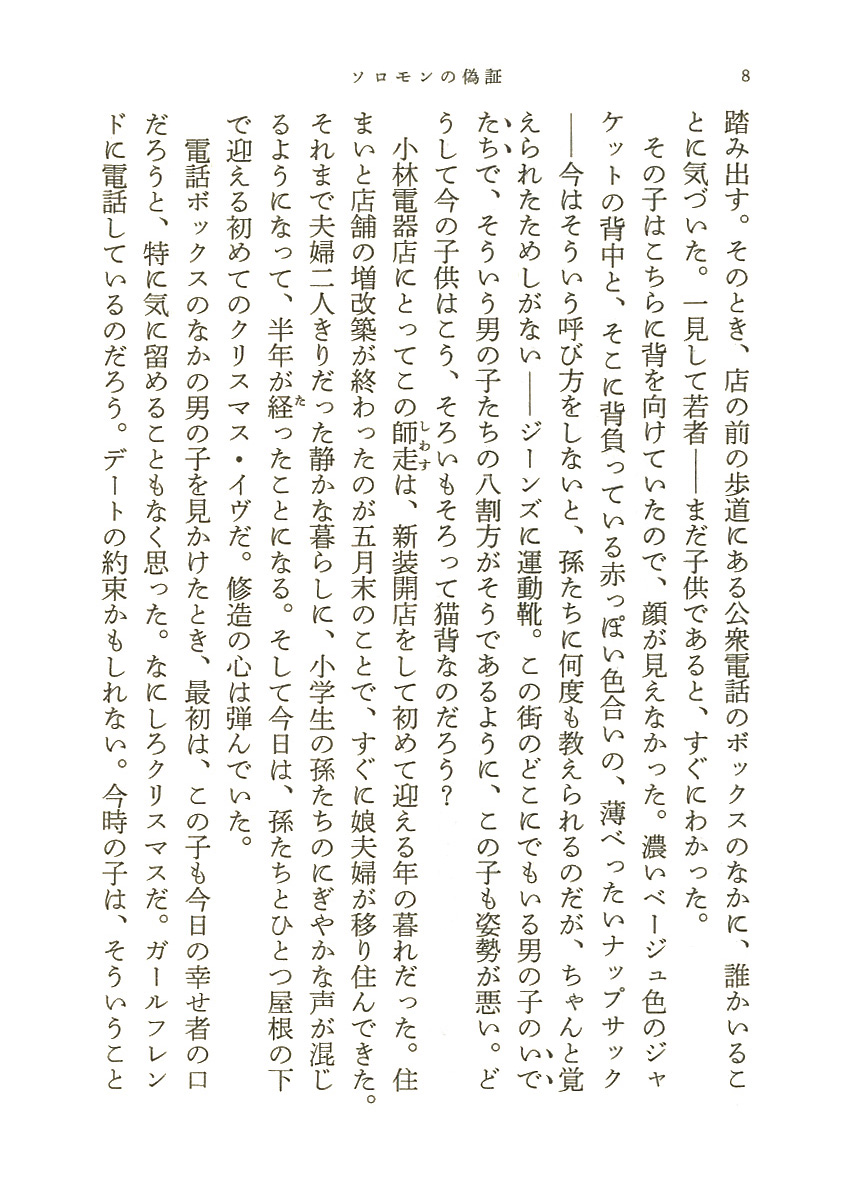 ソロモンの偽証
8
踏み出す。そのとき、店の前の歩道にある公衆電話のボックスのなかに、誰かいるこ
とに気づいた。一見して若者――まだ子供であると、すぐにわかった。
その子はこちらに背を向けていたので、顔が見えなかった。濃いベージュ色のジャ
ケットの背中と、そこに背負っている赤っぽい色合いの、薄べったいナップサック
――今はそういう呼び方をしないと、孫たちに何度も教えられるのだが、ちゃんと覚
えられたためしがない――ジーンズに運動靴。この街のどこにでもいる男の子のいで
たちで、そういう男の子たちの八割方がそうであるように、この子も姿勢が悪い。ど
うして今の子供はこう、そろいもそろって猫背なのだろう？
小林電器店にとってこの師走しわすは、新装開店をして初めて迎える年の暮れだった。住
まいと店舗の増改築が終わったのが五月末のことで、すぐに娘夫婦が移り住んできた。
それまで夫婦二人きりだった静かな暮らしに、小学生の孫たちのにぎやかな声が混じ
るようになって、半年が経たったことになる。そして今日は、孫たちとひとつ屋根の下
で迎える初めてのクリスマス・イヴだ。修造の心は弾んでいた。
電話ボックスのなかの男の子を見かけたとき、最初は、この子も今日の幸せ者の口
だろうと、特に気に留めることもなく思った。なにしろクリスマスだ。ガールフレン
ドに電話しているのだろう。デートの約束かもしれない。今時の子は、そういうこと